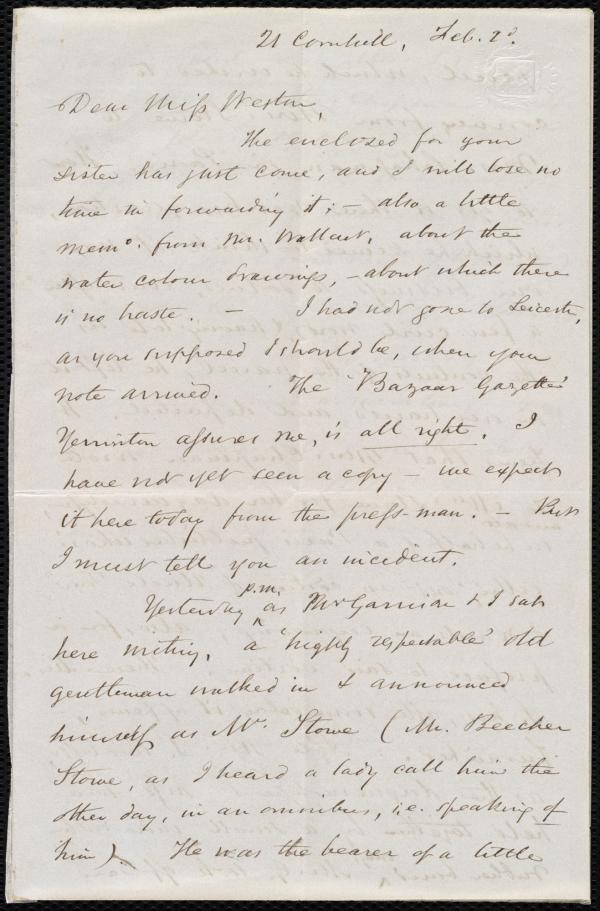 21 Cornhill, Feb. 2d.
Dear Miss Weston,
The enclosed for your
sister has just come, and I will lose no
time in forwarding it; – also a little
memo. from Mr. Wallcut, about the
water colour drawings, – about which there
is no haste. – I had not gone to Leicester,
as you supposed I should be, when your
note arrived. The 'Bazaar Gazette'
Yerrinton assures me, is all right. I
have not yet seen a copy – we expect
it here today from the press-man. – But
I must tell you an incident.
Yesterday p.m. as Mr Garrison & I sat
here writing, a 'highly respectable' old
gentleman walked in & announced
himself as Mr. Stowe (Mr. Beecher
Stowe, as I heard a lady call him the
other day, in an omnibus, i.e. speaking of
him). He was the bearer of a little